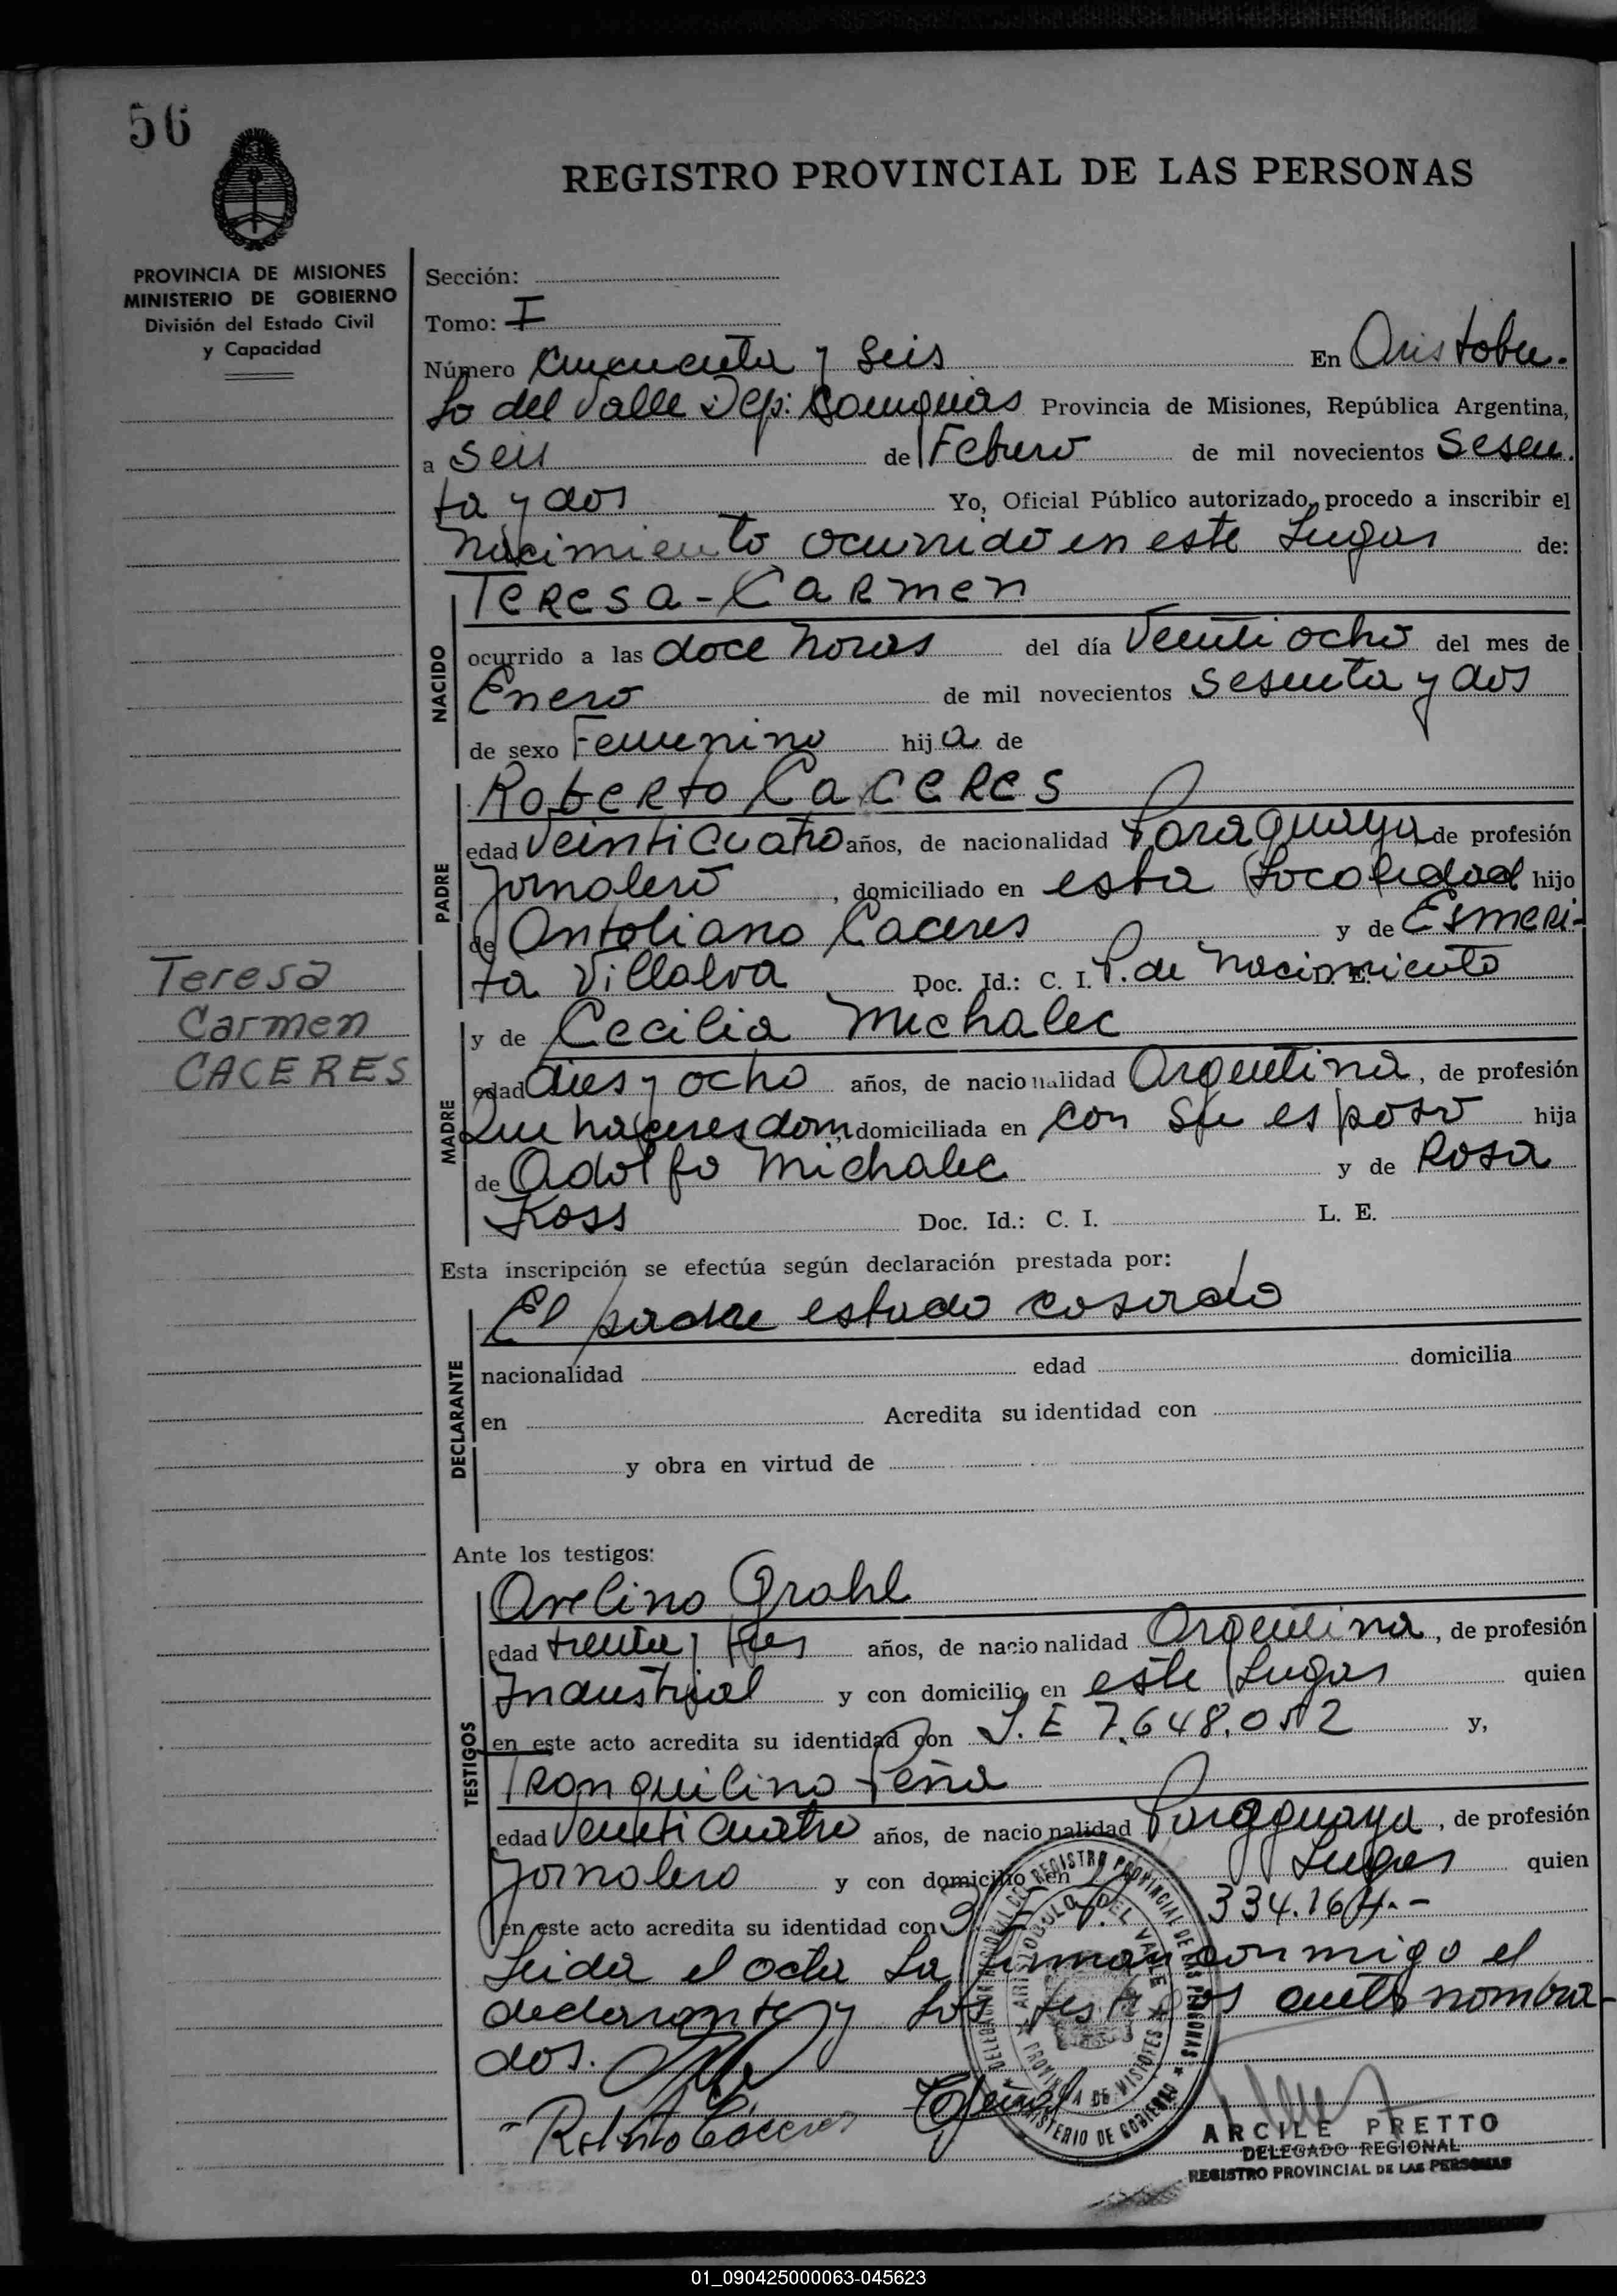 56
REGISTRO PROVINCIAL DE LAS PERSONAS
PROVINCIA DE MISIONES
MINISTERIO DE GOBIERNO
División del Estado Civil
y Capacidad
Sección:
Tomo: I
Número Cincuenta y Seis En Aristobu-
lo del Valle Dep: Cainguas Provincia de Misiones, República Argentina,
a Seis de Febrero de mil novecientos Sesen-
ta y dos Yo, Oficial Público autorizado, procedo a inscribir el
Nacimiento ocurrido en este Lugar de:
NACIDO
Teresa-Carmen
ocurrido a las doce horas del día Veinti ocho del mes de
Enero de mil novecientos Sesenta y dos
de sexo Femenino hija de
PADRE
Roberto CaCeRes
edad Veinticuatro años, de nacionalidad Paraguaya de profesión
Jornalero, domiciliado en esta Localidad hijo
de Antoliano Caceres y de Esmeri-
ta Villalva Doc. Id.: C. I. P. de Nacimiento L. E.
Teresa
Carmen
CACERES
MADRE
y de Cecilia Michalec
edad dies y ocho años, de nacionalidad Argentina, de profesión
Que haceres dom domiciliada en con su esposo hija
de Adolfo Michalec y de Rosa
Koss Doc. Id.: C. I. L. E.
Esta inscripción se efectúa según declaración prestada por:
DECLARANTE
El padre estado casado
nacionalidad edad domicilia
en Acredita su identidad con
y obra en virtud de
Ante los testigos:
TESTIGOS
Avelino Grahl
edad treinta y tres años, de nacionalidad Argentina, de profesión
Industrial y con domicilio en este Lugar quien
en este acto acredita su identidad con L. E 7.648.052 y,
Tranquilino Peña
edad Veinti Cuatro años, de nacionalidad Paraguaya, de profesión
Jornalero y con domicilio en Lugar quien
en este acto acredita su identidad con 334.164.-
Leida el acta La firman conmigo el
declarante y Los testigos antes nombra-
dos.
Roberto Caceres
TPeña
DELEGACION REGIONAL DEL REGISTRO PROVINCIAL DE LAS PERSONAS
MINISTERIO DE GOBIERNO
ARISTOBULO DEL VALLE
PROVINCIA DE MISIONES
ARCILE PRETTO
DELEGADO REGIONAL
REGISTRO PROVINCIAL DE LAS PERSONAS
01_090425000063-045623